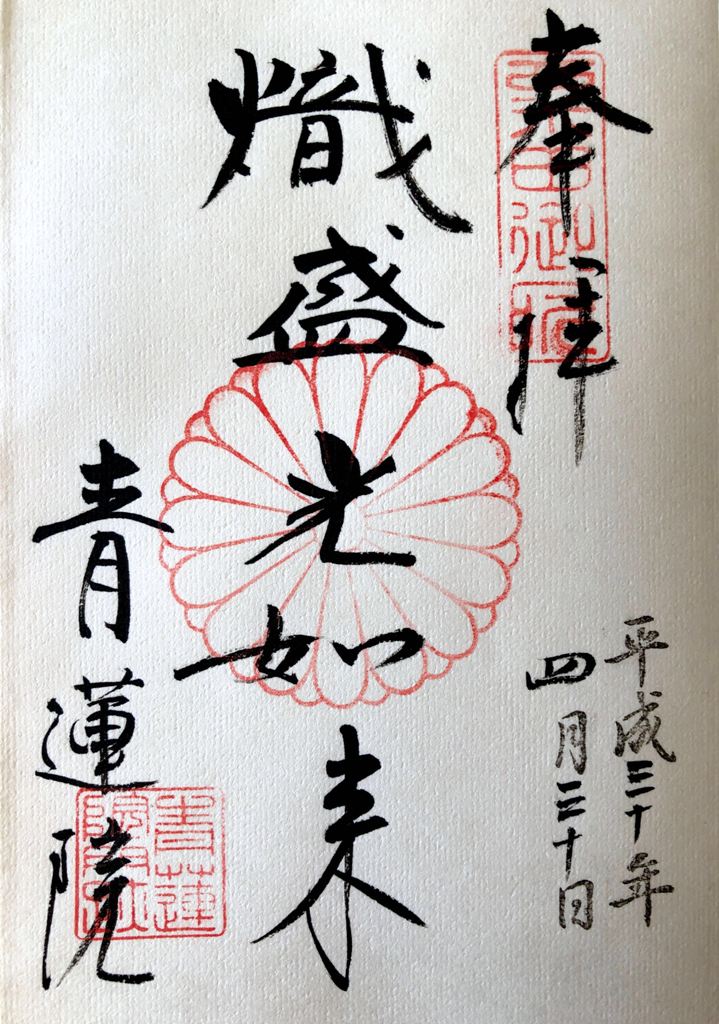 奉拝
平成三十年
四月三十日
熾盛光如来
青蓮院
青蓮
院門跡